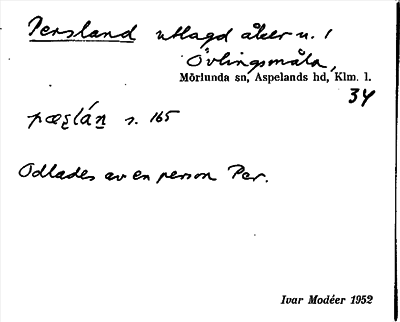 Persland utlagd åker n. 1
Övlingsmåla,
Mörlunda sn, Aspelands hd, Klm. l.
34
s. 165
Odlades av en person Per.
Ivar Modéer 1952